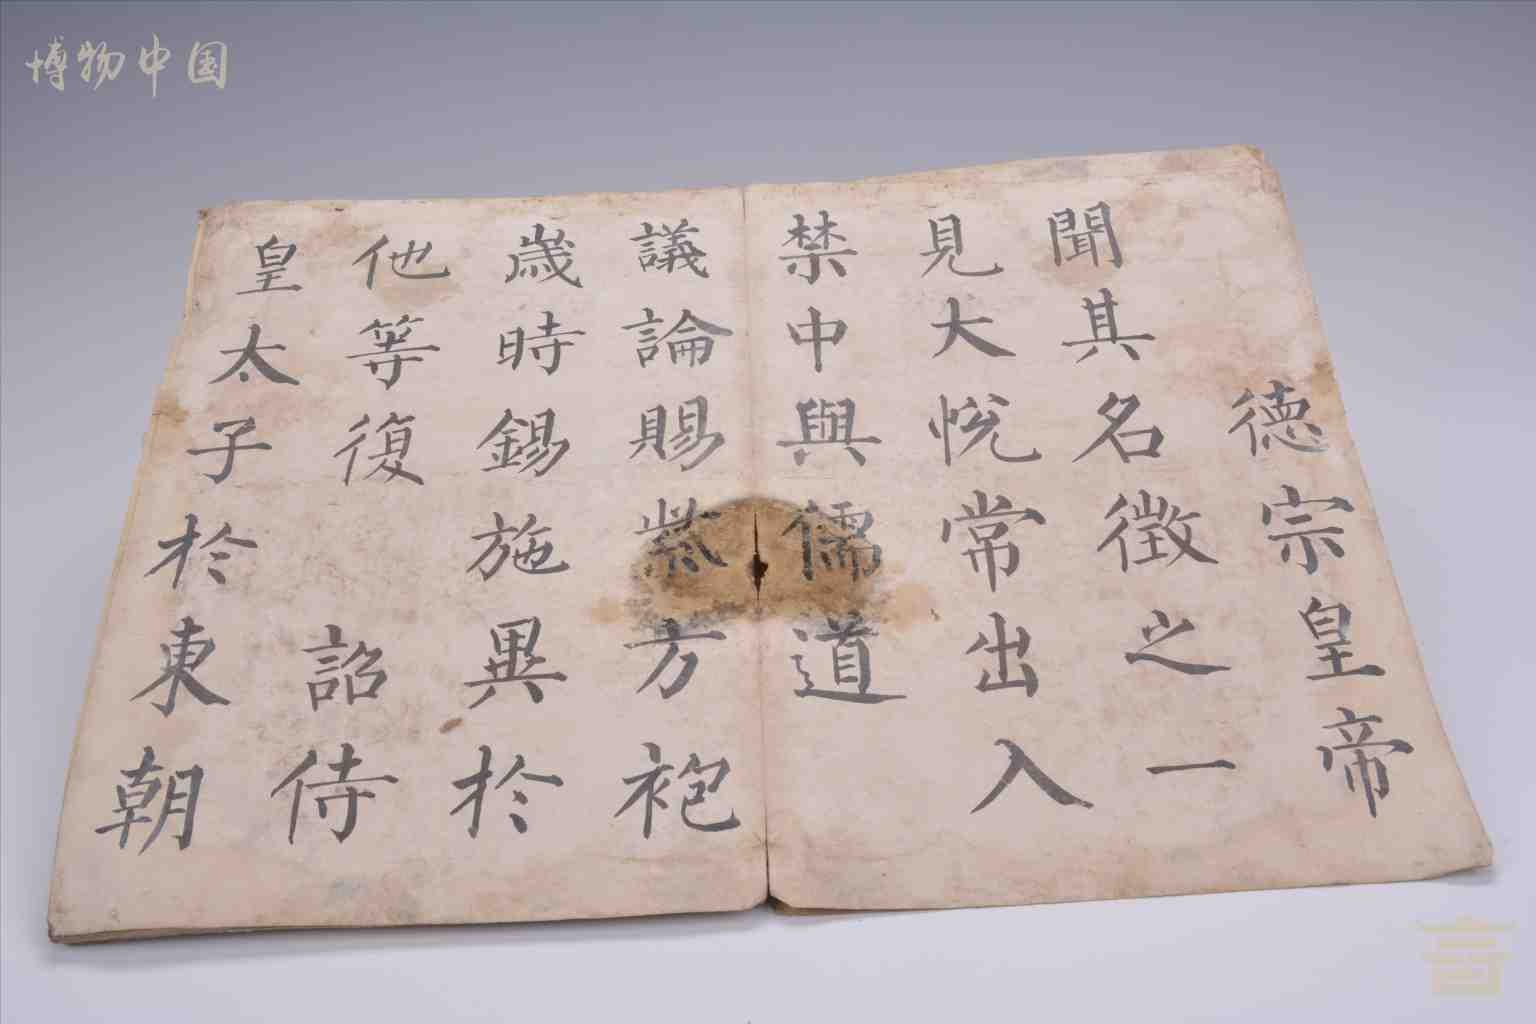 博物中国
德宗皇帝
聞其名徵之一
見大悅常出入
禁中與儒道
議論賜紫方袍
歲時錫施異於
他等復詔侍
皇太子於東朝